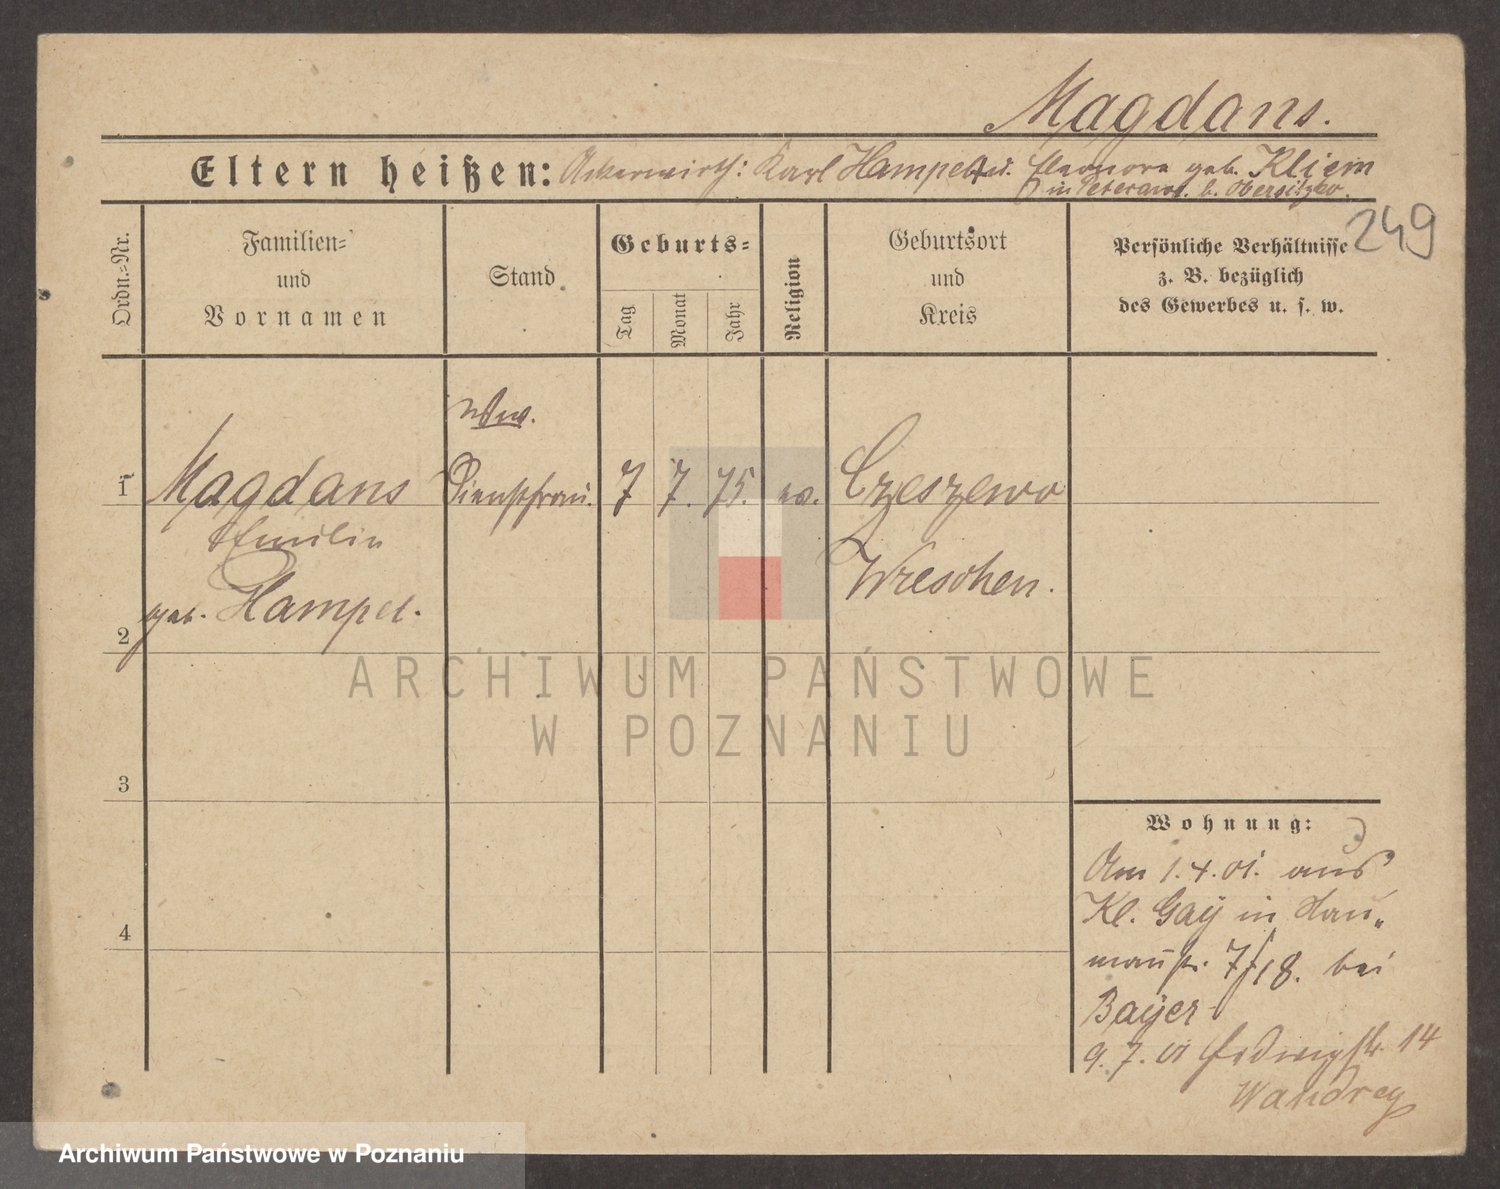 Magdans.
Eltern heißen: Ackerwirth: Karl Hampel u. Eleonora geb. Kliem
in b. Obersitzko.
249
Ordn.-Nr.
Familien-
und
Vornamen
Stand
Geburts-
Tag
Monat
Jahr
Religion
Geburtsort
und
Kreis
Persönliche Verhältnisse
z. B. bezüglich
des Gewerbes u. s. w.
Wwe.
1 Magdans Dienstfrau. 7 7. 75. ev. Czeszewo
Emilie
Wreschen.
geb. Hampel.
2
3
4
Wohnung:
Am 1.4.01. aus
Kl. Gaÿ in Nau„
mannstr. 7/18. bei
Baÿer
9.7.01 Hedwigstr. 14
Wandrey
ARCHIWUM PAŃSTWOWE
W POZNANIU
Archiwum Państwowe w Poznaniu